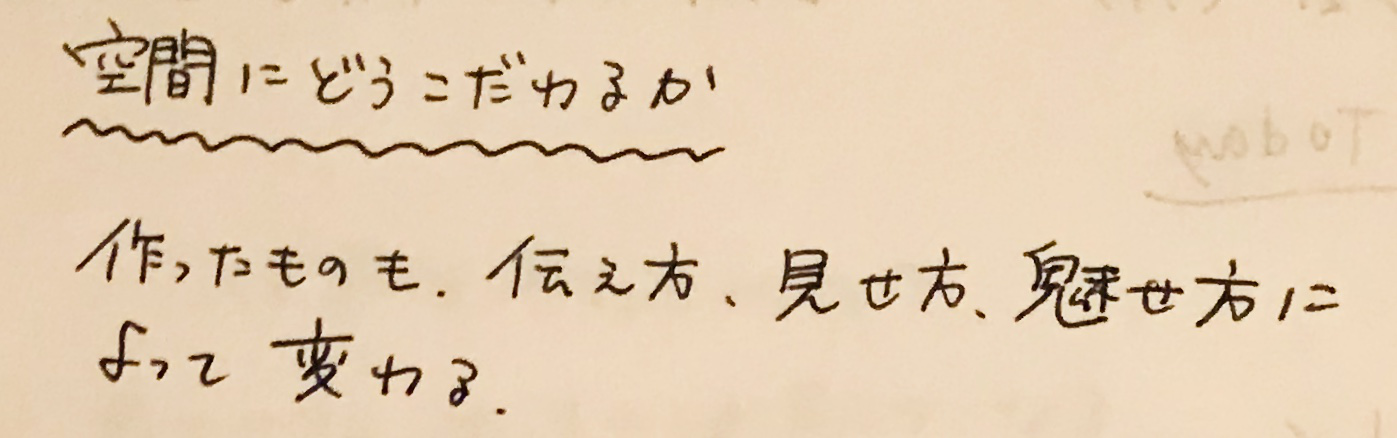 空間にどうこだわるか
作ったものも、伝え方、見せ方、魅せ方に
よって変わる.
Today